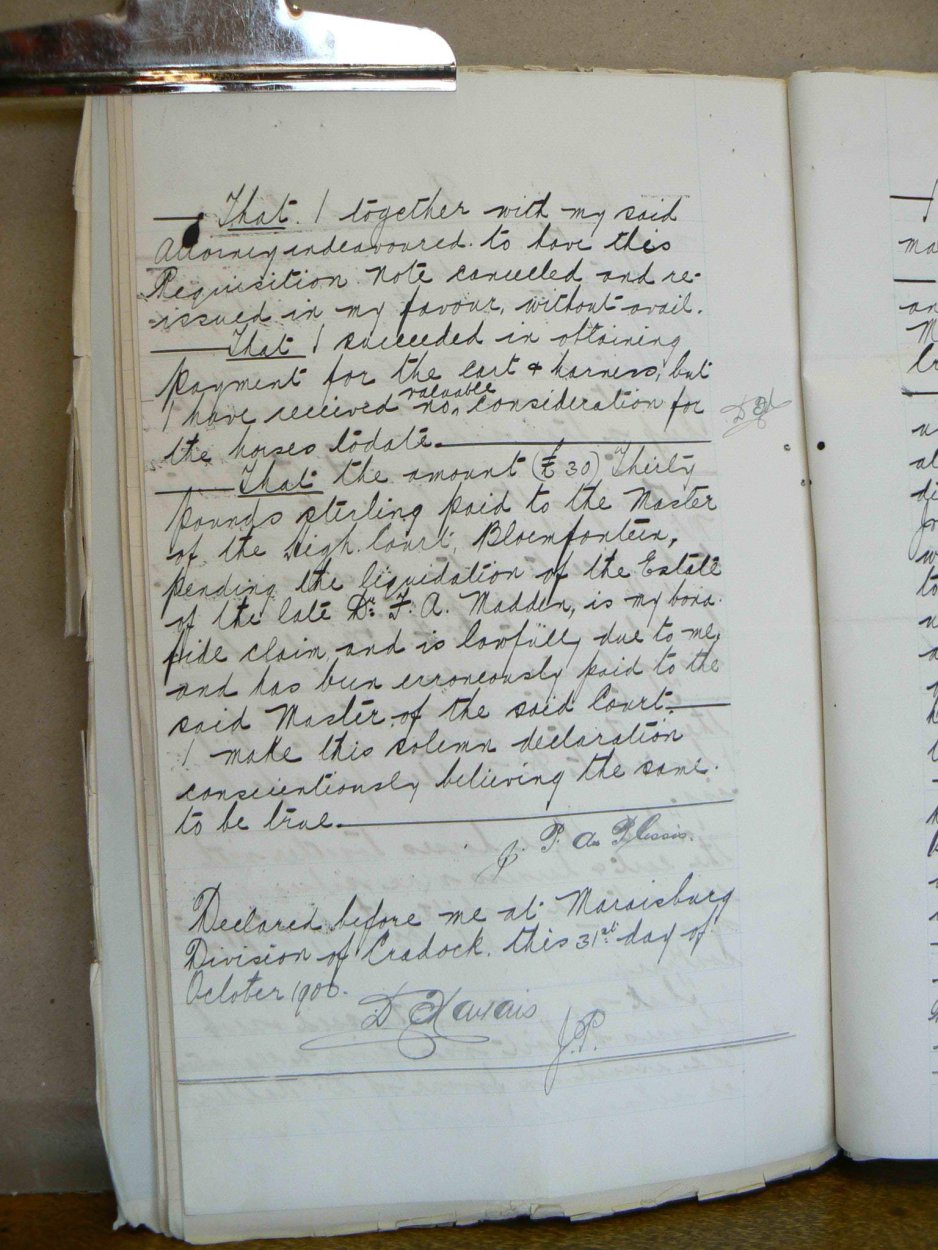 That I together with my said
Attorney endeavoured to have this
Requisition Note cancelled and re-
issued in my favour, without avail.
That I succeeded in obtaining
payment for the cart & harness, but
valuable
I have received no consideration for
the horses todate.
That the amount (£30) Thirty
pounds sterling paid to the Master
of the High Court, Bloemfontein,
pending the liquidation of the Estate
of the late Dr. F. A. Madden, is my bona
fide claim and is lawfully due to me,
and has been erroneously paid to the
said Master of the said Court.
I make this solemn declaration
conscientiously believing the same
to be true.
J. P. du Plessis.
Declared before me at Maraisburg
Division of Cradock. this 31st day of
October
J.P.